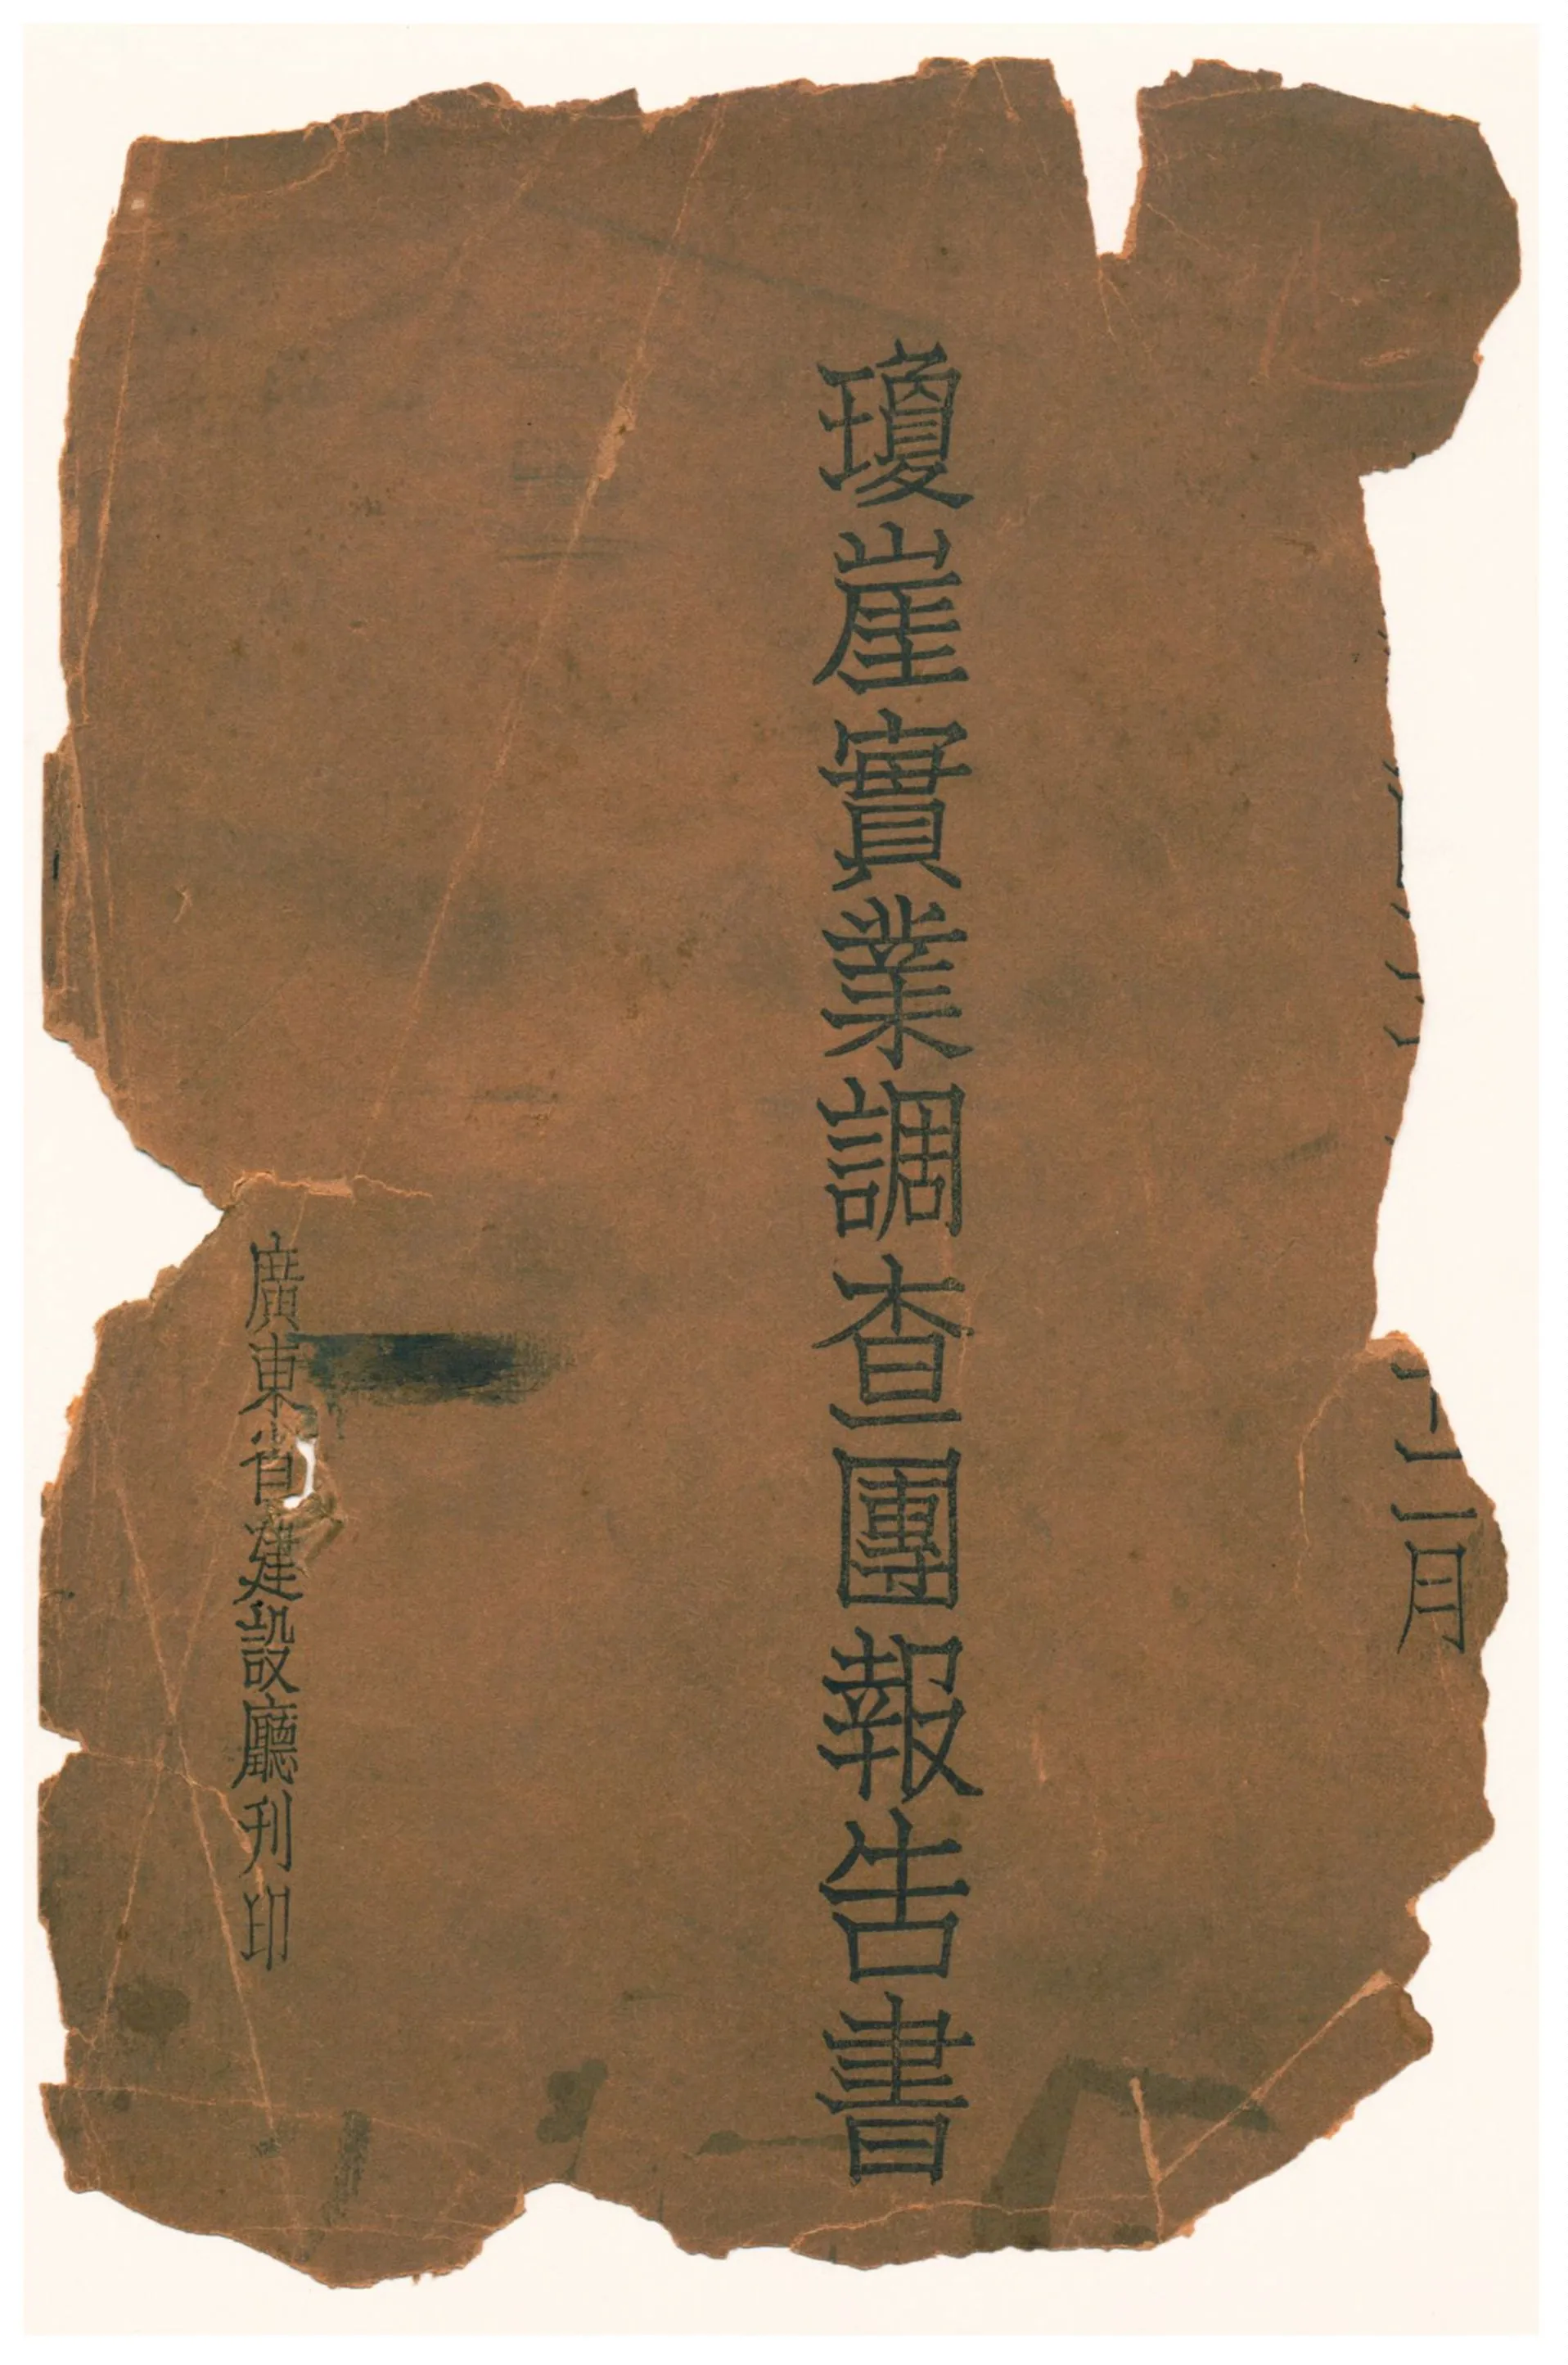 十二月
瓊崖實業調查團報告書
廣東省建設廳刊印